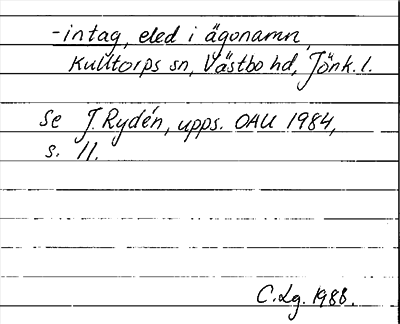 -intag, eled i ägonamn,
Kulltorps sn, Västbo hd, Jönk. l.
Se J. Rydén, upps. OAU 1984,
s. 11.
C. Lg. 1988.